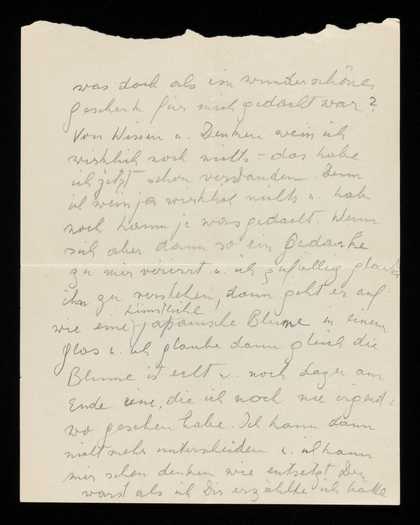 was doch als ein wunderschönes
Geschenk für mich gedacht war?
Von Wissen u. Denken weiss ich
wirklich noch nichts – das habe
ich jetzt schon verstanden. Denn
ich weiss ja wirklich nichts u. habe
noch kaum je was gedacht. Wenn
sich aber dann so ein Gedanke
zu mir verirrt u. ich zufällig glaube
ihn zu verstehen, dann geht er auf
wie eine künstliche japanische Blume in einem
Glas u. ich glaube dann gleich die
Blume ist echt u. noch sogar am
Ende eine, die ich noch nie irgend-
wo gesehen habe. Ich kann dann
nicht mehr unterscheiden u. ich kann
mir schon denken wie entsetzt Du
warst als ich Dir erzählte ich hätte